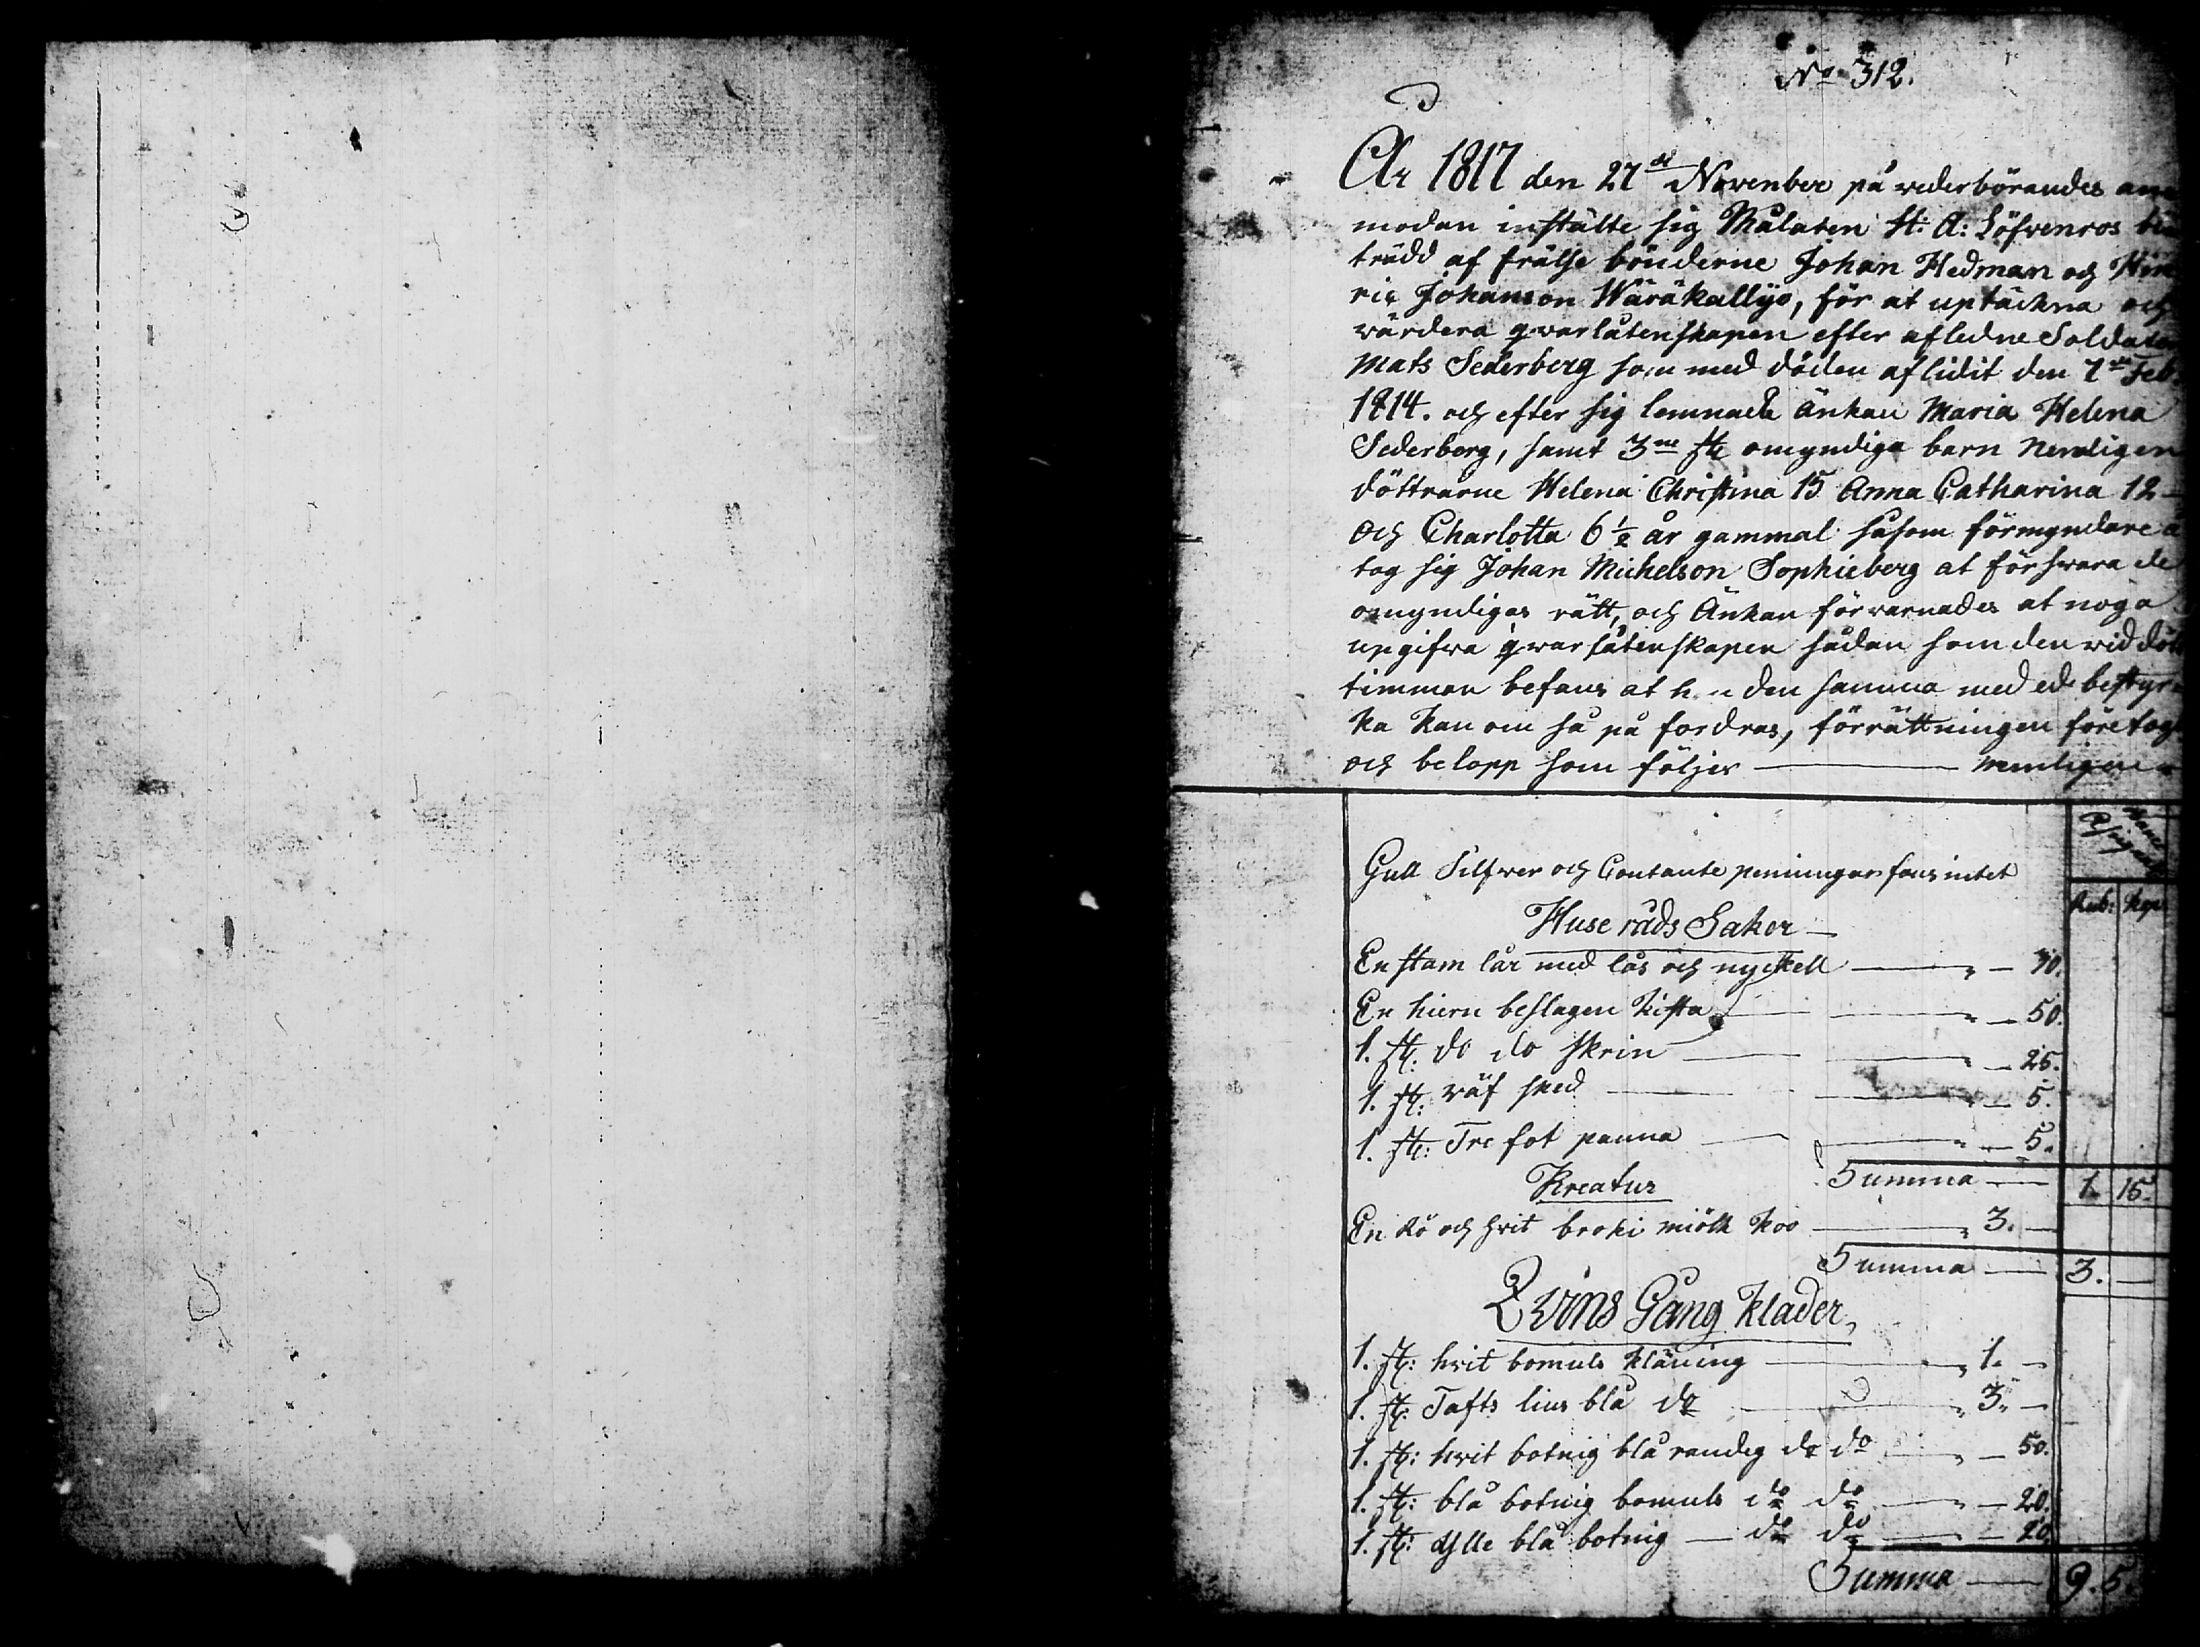 No 312.
År 1817 den 27de November på vederbörandes an
modan instälte sig Målaren H: A: Löfvenros bi
trädd af frälse bönderne Johan Hedman och Hin
ric Johanson Waräkallyo, för at uptäckna och
värdera qvarlåtenskapen efter afledne Soldaten
Mats Sederberg som med döden aflidit den 7de Feb:
1814. och efter sig lemnade Änkan Maria Helena
Sederberg, samt 3ne st: omyndiga barn nemligen
döttrarne Helena Christina 15 Anna Catharina 12 –
och Charlotta 6 ½ år gammal såsom förmyndare å
tog sig Johan Michelson Sophieberg at försvara de
omyndigas rätt, och Änkan förvarnades at noga
upgifva qvarlåtenskapen sådan som den vid döds
timman befans at den samma med ed bestyr
ka kan om så på fordras, förrättningen företogs
och belopp som följer — nemligen
Banco Assignat
Gull Silfver och Contante penningar fans intet
Rub: Kop:
Huse råds Saker —
En stam lår med lås och nyckell — „ — 30.
En hiern beslagen kista — „ — 50.
1. st: do do skrin — „ — 25.
1. st: räf sked — „ — 5.
1. st: Tre fot panna — „ — 5.
Summa — 1. 15.
Kreatur
En rö och hvit broki miölk koo — „ 3. —
Summa — 3. —
Qvins Gång Klader
1. st: hvit bomuls kläning — „ 1. —
1. st: Tafts lius blå do — „ 3. —
1. st: hvit botnig blå randig do do — „ — 50.
1. st: blå botnig bomuls do do — „ — 20.
1. st: Ylle blå botnig — do do — — 20.
Summa — 9. 5.